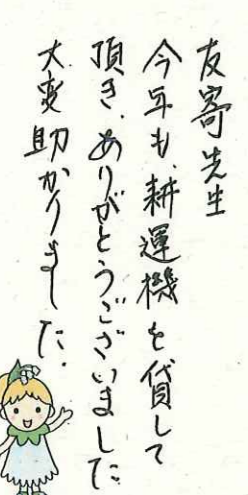 友寄先生
今年も、耕運機を貸して
頂き、ありがとうございました
大変助かりました。